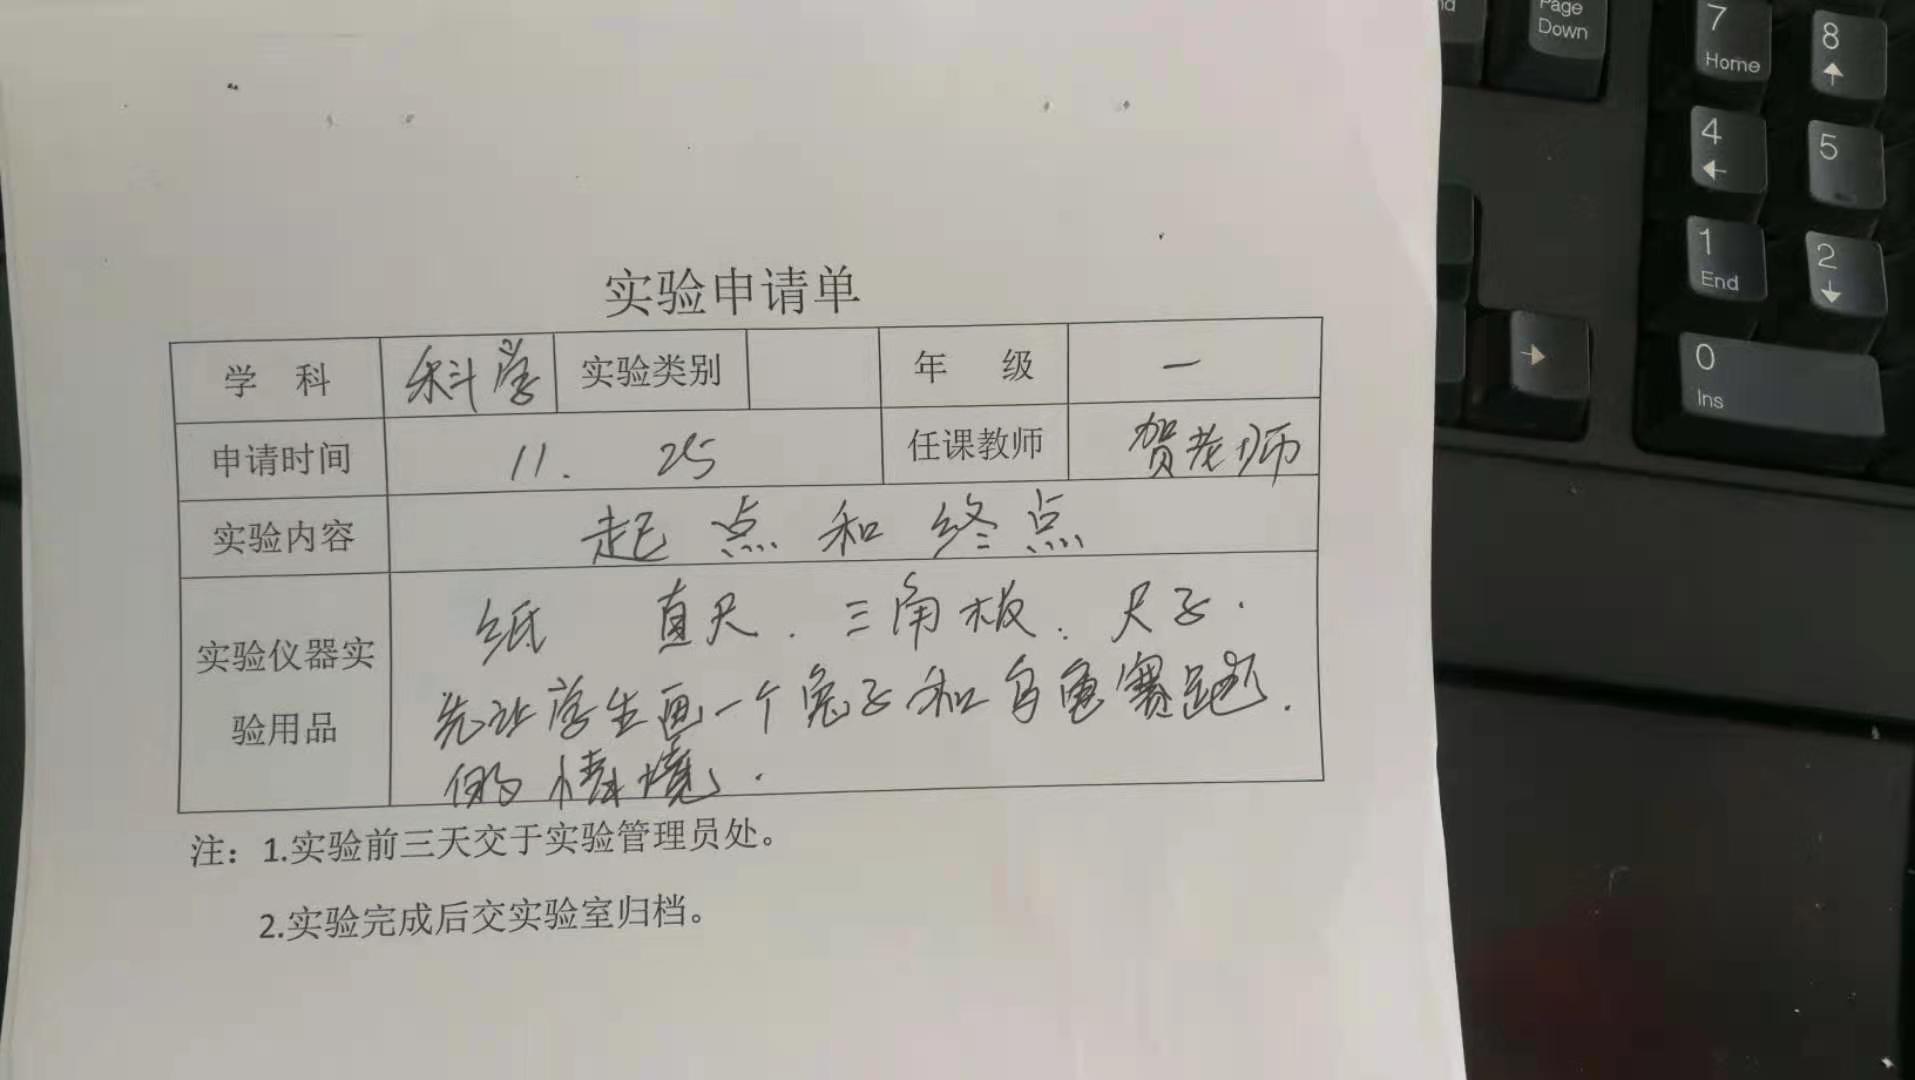 实验申请单
学 科 科学 实验类别 年 级 一
申请时间 11. 25 任课教师 贺老师
实验内容 起点和终点
实验仪器实验用品
纸 直尺. 三角板. 尺子.
先让学生画一个兔子和乌龟赛跑.
的情境.
注：1.实验前三天交于实验管理员处。
2.实验完成后交实验室归档。
Page
Down
7
Home
8
4
5
1
End
2
0
Ins